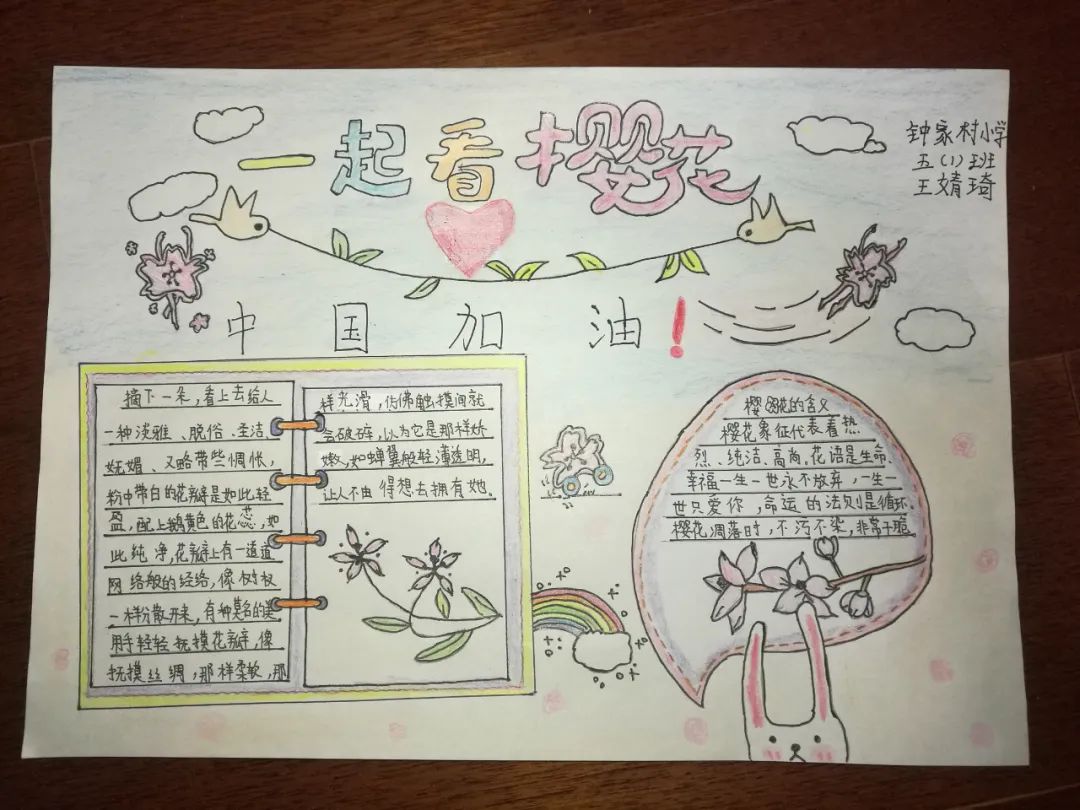 一起看樱花
钟家村小学
五(1)班
王婧琦
中国加油!
摘下一朵,看上去给人
一种淡雅、脱俗、圣洁、
妩媚、又略带些惆怅,
粉中带白的花瓣是如此轻
盈,配上鹅黄色的花蕊,如
此纯净,花瓣上有一道道
网络般的经络,像树杈
一样分散开来,有种莫名的美
用手轻轻抚摸花瓣,像
抚摸丝绸,那样柔软,那
样光滑,仿佛触摸间就
会破碎,以为它是那样娇
嫩,如蝉翼般轻薄透明,
让人不由得想去拥有她。
樱花的含义
樱花象征代表着热
烈、纯洁、高尚,花语是生命.
幸福一生一世永不放弃,一生一
世只爱你,命运的法则是循环.
樱花凋落时,不污不染,非常干脆.